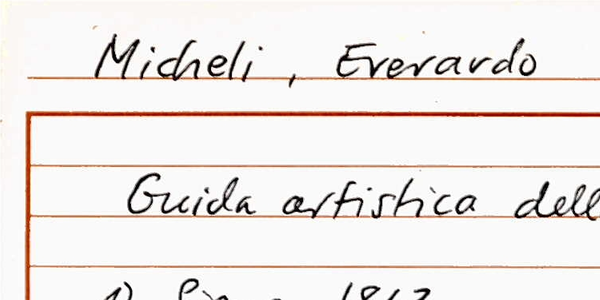 Micheli, Everardo
Guida artistica dell